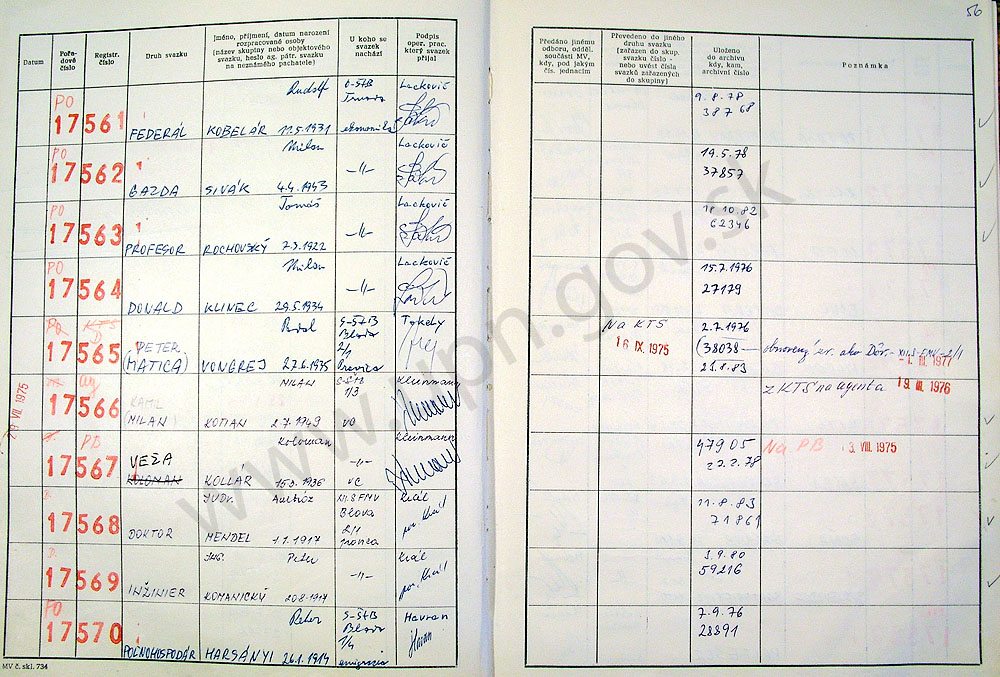 56
Datum
Pořa-
dové
číslo
Registr.
číslo
Druh svazku
Jméno, příjmení, datum narození
rozpracované osoby
(název skupiny nebo objektového
svazku, heslo ag. pátr. svazku
na neznámého pachatele)
U koho se
svazek
nachází
Podpis
oper. prac.
který svazek
přijal
Předáno jinému
odboru, odděl.
součásti MV,
kdy, pod jakým
čís. jednacím
Převedeno do jiného
druhu svazku
(zařazen do skup.
svazku číslo -
nebo uvést čísla
svazků zařazených
do skupiny)
Uloženo
do archivu
kdy, kam,
archivní číslo
Poznámka
PO
17561
FEDERÁL
Rudolf
KOBELÁR 11.5.1931
O-ŠtB
Trnava
ekonomika
Lackovič
9.8.78
38768
PO
17562
GAZDA
Milan
SIVÁK 4.4.1943
-"-
Lackovič
19.5.78
37857
PO
17563
PROFESOR
Tomáš
ROCHOVSKÝ 7.3.1922
-"-
Lackovič
18.10.82
62346
PO
17564
DONALD
Milan
KLINEC 29.5.1934
-"-
Lackovič
15.7.1976
27179
PO KTS
17565
(PETER
(MATICA)
VONGREJ 27.6.1935
S-ŠtB
Blava
2/1
Previca
Tokoly
Na KTS
16 IX. 1975
2.7.1976
(38038
23.8.83
obnovený ev. ako Dôv. - XII.S-FMV-2/1
-1. III. 1977
29 VII. 1975
17566
KAMIL
(MILAN)
MILAN
KOMAN 2.7.1949
S-ŠtB
1/3
VO
Kleinmann
z KTS na agenta
19. III. 1976
PB
17567
VEŽA
KOLOMAN
Koloman
KOLLÁR 15.3.1936
-"-
VC
Kleinmann
47905
22.2.78
Na PB
13. VIII. 1975
D.
17568
DOKTOR
JUDr.
MENDEL 1.1.1917
XII.S FMV
Blava
2/1
Král
por. Král
11.8.83
71861
D.
17569
INŽINIER
Ing. Peter
KOMANICKÝ 20.8.1914
-"-
Král
por. Král
3.9.80
59216
PO
17570
POĽNOHOSPODÁR
Peter
HARSÁNYI 26.1.1914
S-ŠtB
Blava
1/4
emigrazia
Havran
Havran
7.9.76
28891
MV č. skl. 734
www.upn.gov.sk